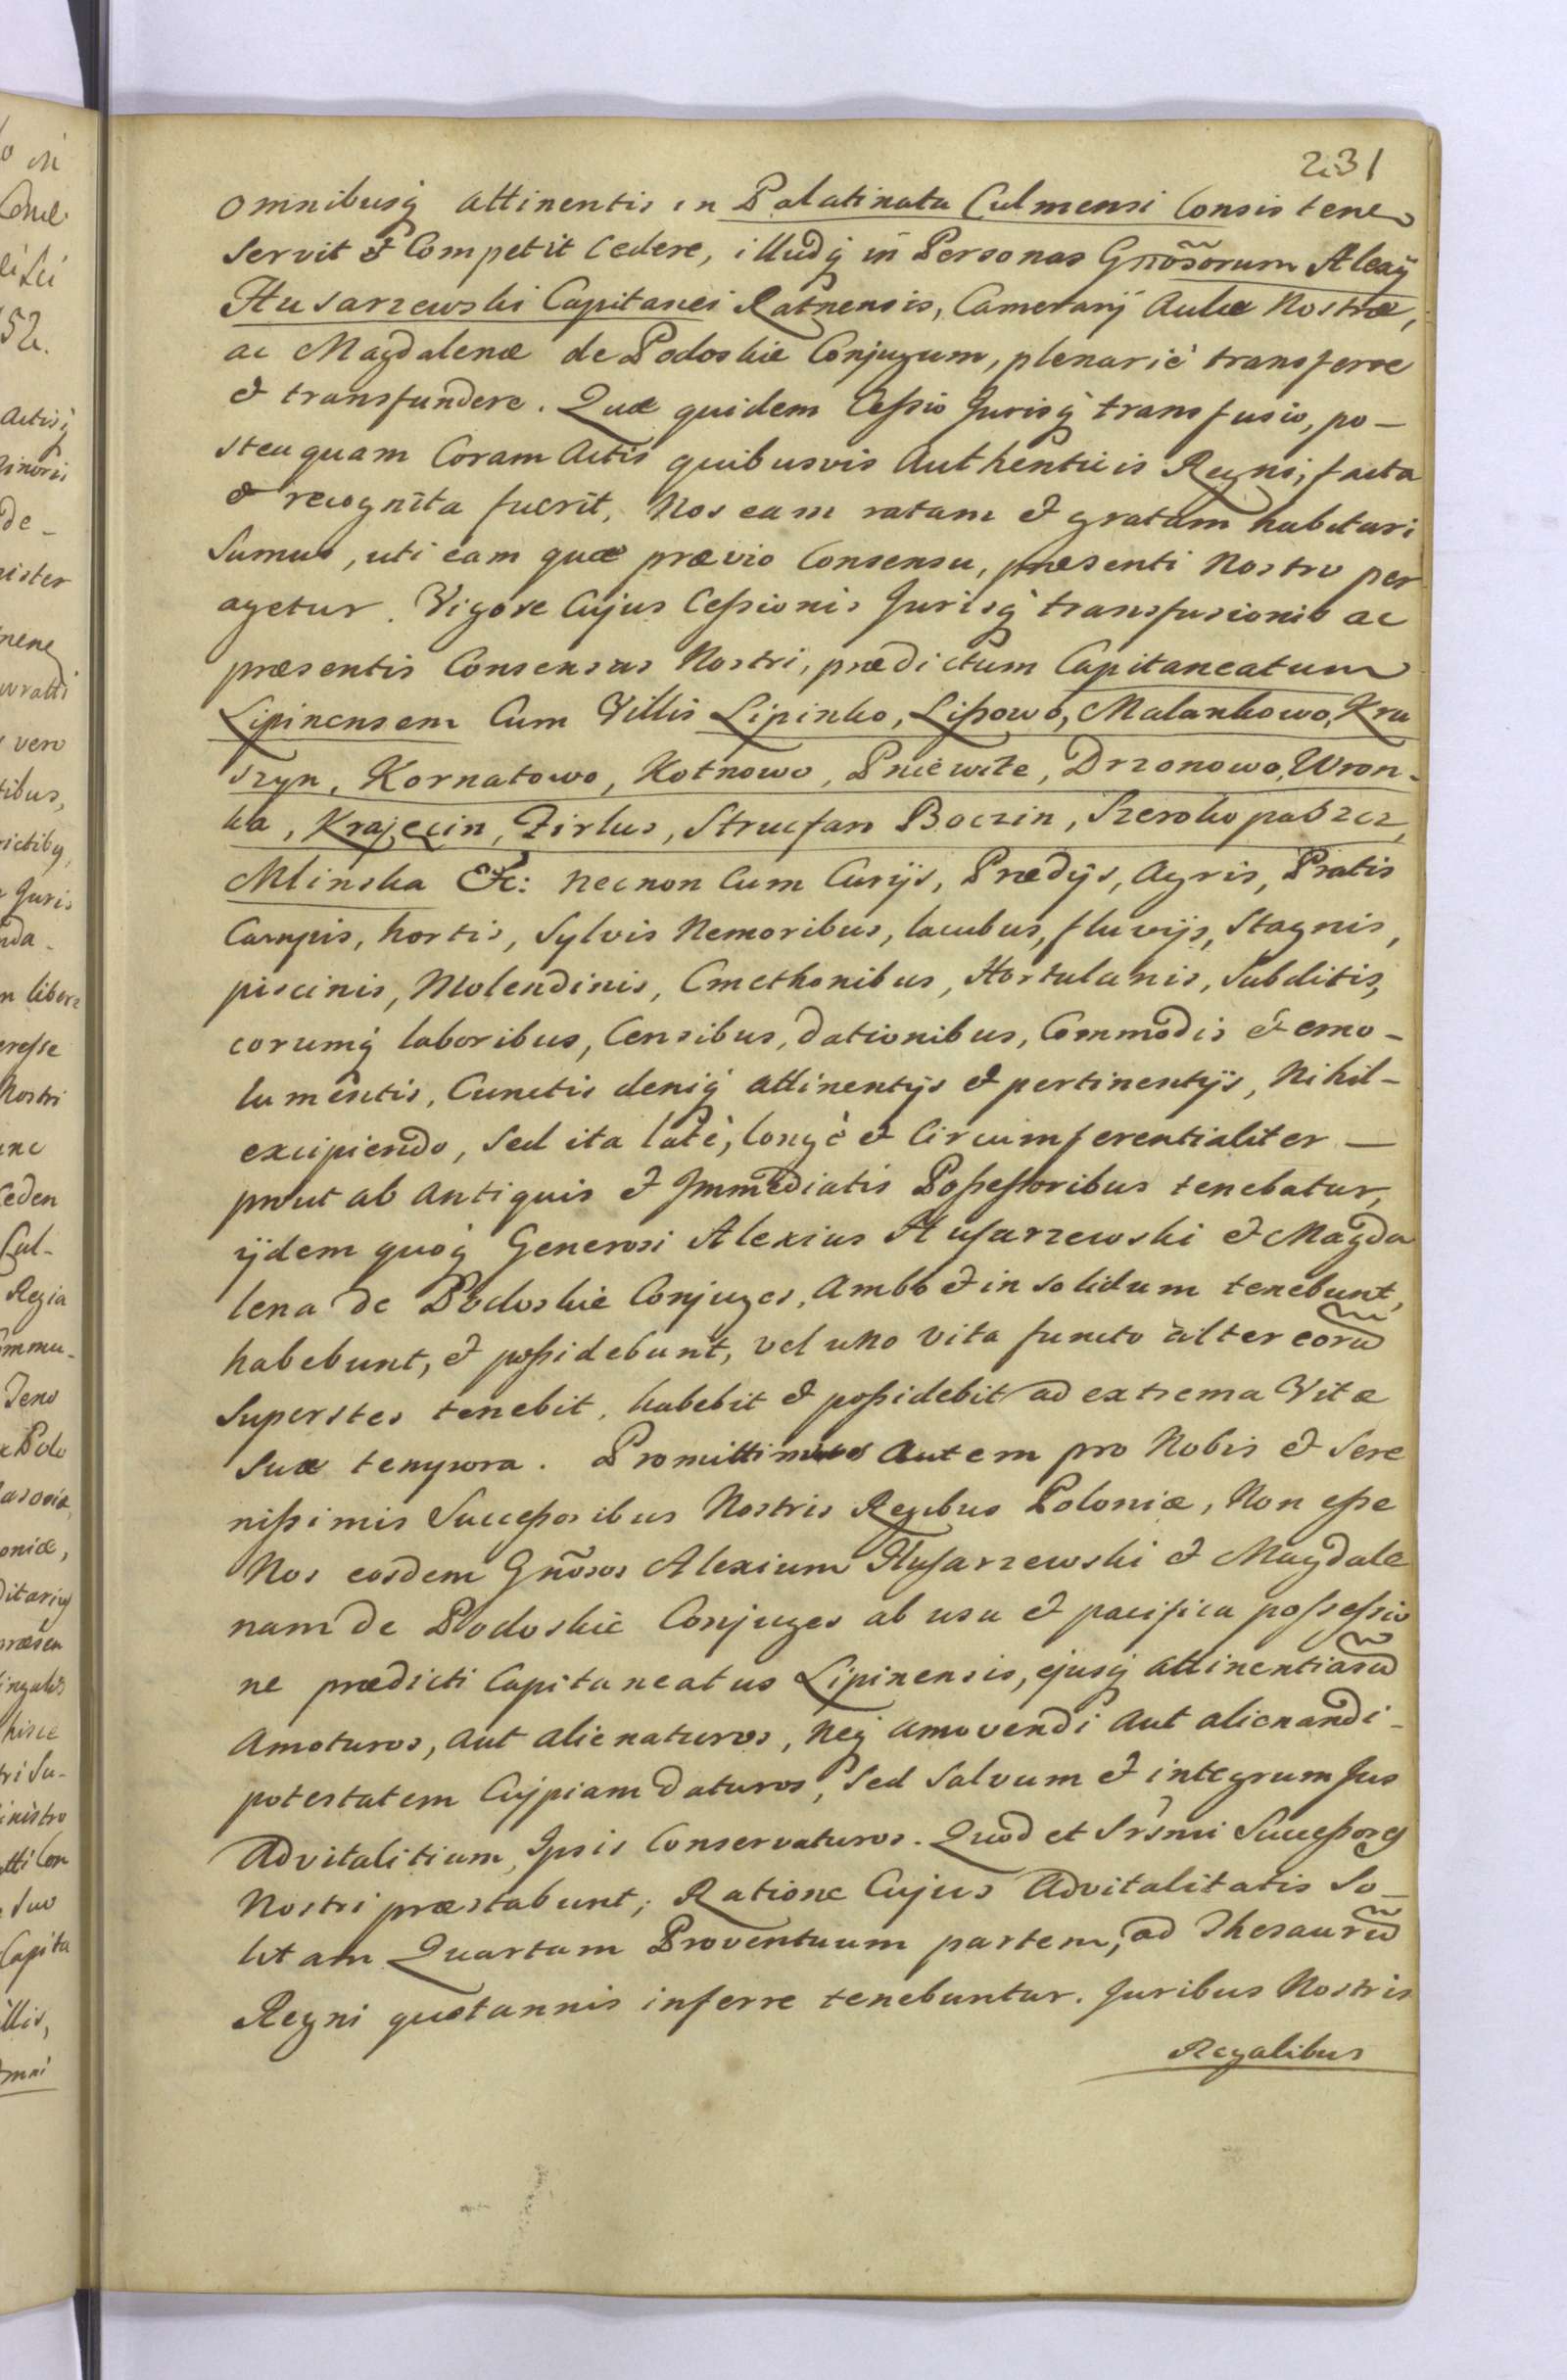 231
omnibusq́ attinentis in Palatinatu Culmensi Consistene
servit & Competit Cedere, illudq́ in Personas Gnõsorum Alexij
Husarzewski Capitanei Ratnensis, Camerarij Aulæ Nostræ,
ac Magdalenæ de Podoskie Conjugum, plenariè transferre
& transfundere. Quæ quidem Cessio Jurisq́ transfusio, po-
steaquam Coram Actis quibusvis Authenticis Regni, facta
& recognita fuerit, Nos eam ratam & gratam habituri
Sumus, uti eam quæ prævio Consensu, præsenti Nostro per
agetur. Vigore Cujus Cessionis Jurisq́ transfusionis ac
præsentis Consensus Nostri, prædictum Capitaneatum
Lipinensem Cum Villis Lipinko, Lissowo, Malankowo, Kru
szyn, Kornatowo, Kotnowo, Pniewite, Drzonowo, Wron-
ka, Krajęcin, Firlus, Strucfan Boczin, Szerokopas zcz,
Mlinska &c: necnon Cum Curijs, Prædijs, Agris, Pratis
Campis, hortis, Sylvis Nemoribus, lacubus, fluvijs, Stagnis,
piscinis, Molendinis, Cmethonibus, Hortulanis, Subditis,
eorumq́ laboribus, Censibus, dationibus, Commodis & emo-
lumentis, Cunctis deniq́ attinentijs & pertinentijs, Nihil-
excipiendo, Sed ita latè, longè & Circumferentialiter —
prout ab antiquis & Immediatis Possessoribus tenebatur,
ijdem quoq́ Generosi Alexius Husarzewski & Magda
lena de Podoskie Conjuges, Ambo & in solidum tenebunt,
habebunt, & possidebunt, vel uno vita functo alter eorũ
Superstes tenebit, habebit & possidebit ad extrema Vitæ
Suæ tempora. Promittimus autem pro Nobis & Sere
nissimis Successoribus Nostris Regibus Poloniæ, Non esse
Nos eosdem Gnõsos Alexium Husarzewski & Magdale
nam de Podoskie Conjuges ab usu & pacifica possessio
ne prædicti Capitaneatus Lipinensis, ejusq́ attinentiarũ
Amoturos, aut alienaturos, Neq́ amovendi aut alienandi-
potestatem Cujpiam daturos, Sed Salvum & integrum Jus
Advitalitium, Ipsis Conservaturos. Quod et Srsmi Successores
Nostri præstabunt; Ratione Cujus Advitalitatis So-
litam Quartam Proventuum partem, ad Thesaurũ
Regni quotannis inferre tenebuntur. Juribus Nostris
Regalibus